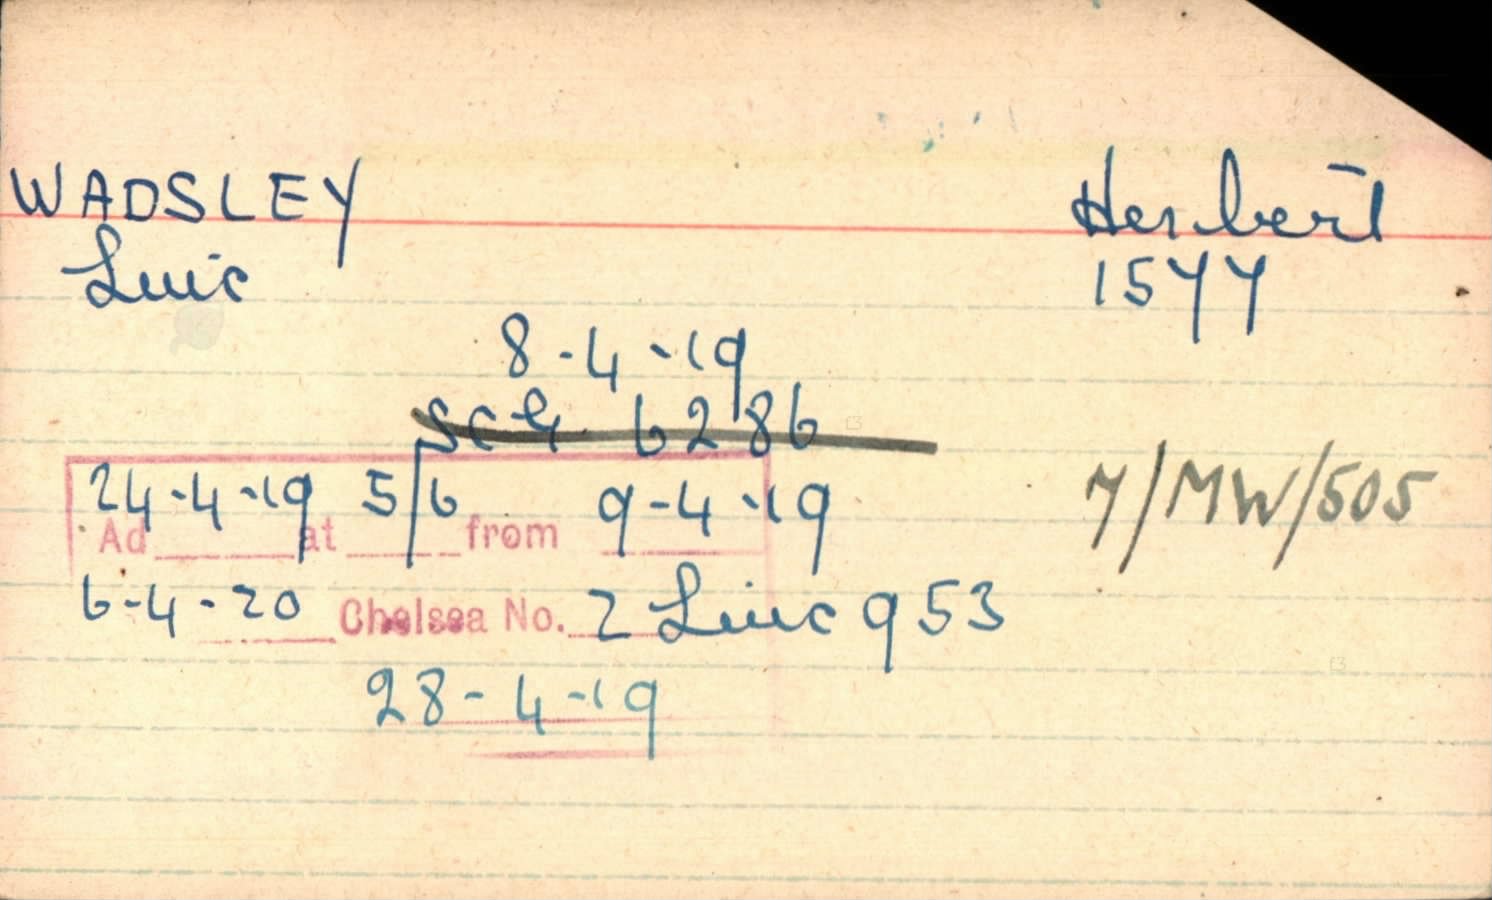 WADSLEY Herbert
Linc 1577
8-4-19
SCG 6286
24-4-19 5/6 9-4-19
Ad at from
7/MW/505
6-4-20 Chelsea No. 2 Linc 953
28-4-19